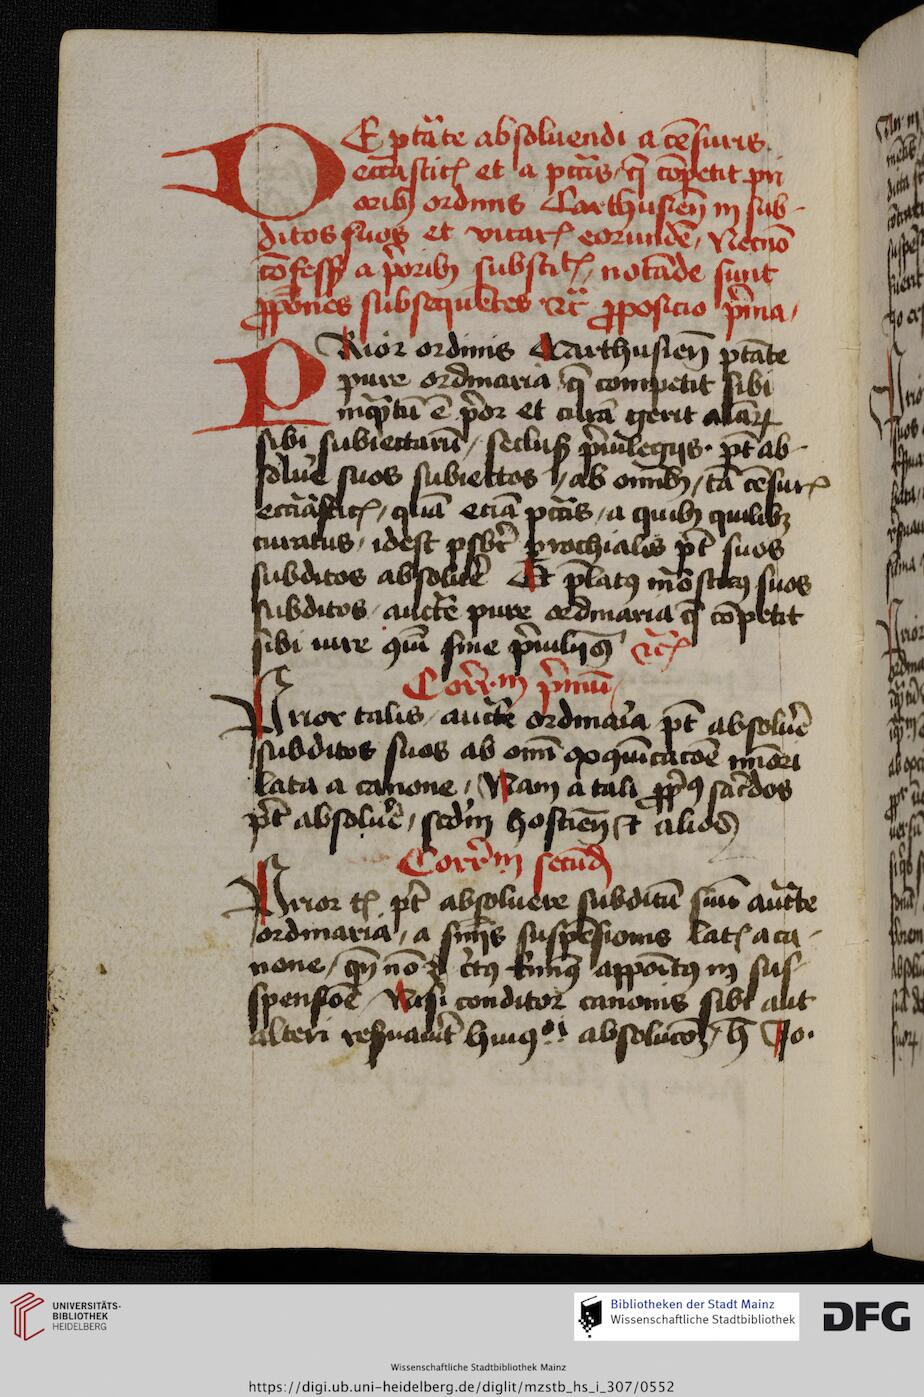 DE ptāte absoluendi a cēsuris
eccāsticꝭ et a pctīs q̄ cōpetit pri
oribꝫ ordinis Carthusien̄ in sub-
ditos suos et vicarꝭ eorundē / Necnō
cōfessꝭ a p̄oribꝫ substitꝭ / notāde sunt
ꝓpōnes subsequētes ꝛcͣ ꝓposicio p̄ma /
PRior ordinis Carthusien̄ ptāte
pure ordinaria q̄ competit sibi
inqͣtū ē p̄or et curā gerit aīaꝝ
sibi subiectarū / seclusꝭ p̄uilegijs · pt̄ ab-
soluē suos subiectos / ab om̄ibꝫ / tā cēsurꝭ
eccīasticꝭ / quā etiā pctīs / a quibꝫ quilibꝫ
curatus / idest psbt̄ prochialis pt̄ suos
subditos absoluē Et p̄latꝰ suos
subditos auctē pure ordinaria q̄ cōpetit
sibi iure qm̄ sine p̄uilijs ꝛcꝭ
Corr̄m p̄mū /
Prior talis / auctē ordinaria pt̄ absoluē
subditos suos ab om̄i excōicatōe mīori
lata a canone / Nam a tali ꝓpꝰ sac̄dos
pt̄ absoluē / scdm̄ hostien̄ et alios
Corr̄m secūdꝫ
Prior tꝭ pt̄ absoluere subditū suū auctē
ordinaria / a suspēsionis latꝭ a ca-
none / qn̄ nō ē c̄tꝰ t̄minꝰ appoītus in sus-
pensiōe / Nisi conditor canonis sibi aut
alteri resꝰuauit absolucōꝫ / h̄ Jo·
UNIVERSITÄTS-
BIBLIOTHEK
HEIDELBERG
Bibliotheken der Stadt Mainz
Wissenschaftliche Stadtbibliothek
DFG
Wissenschaftliche Stadtbibliothek Mainz
https://digi.ub.uni-heidelberg.de/diglit/mzstb_hs_i_307/0552